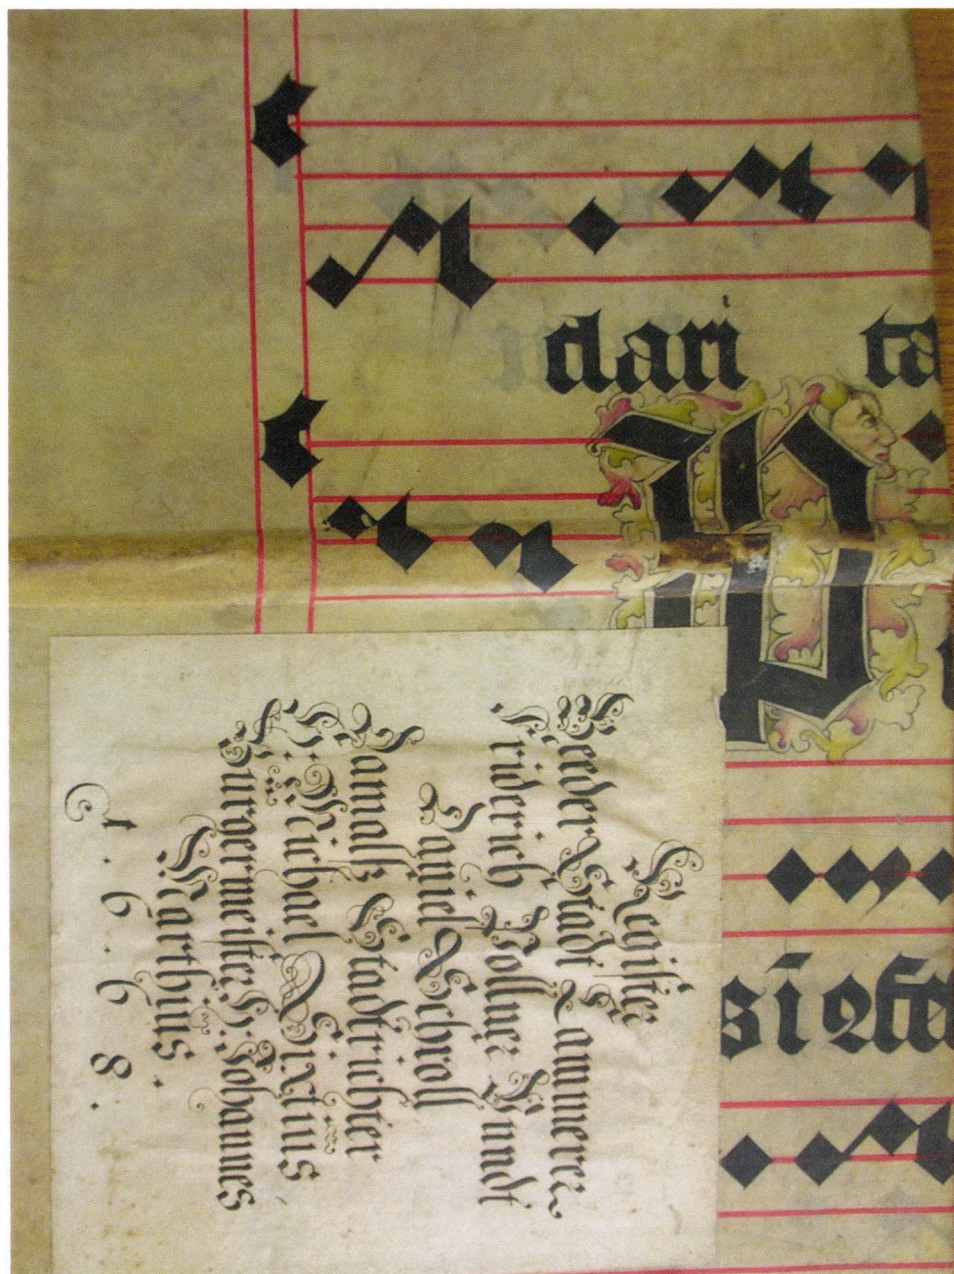 dari ta
Register
Beeder Stadt Cammerer
Friderich Pollner Undt
Daniel Schroll
Damalß Stadtrichter
H: Michael Sixtus
Burgermeister H: Johannes
Barthius.
1. 6. 6. 8.